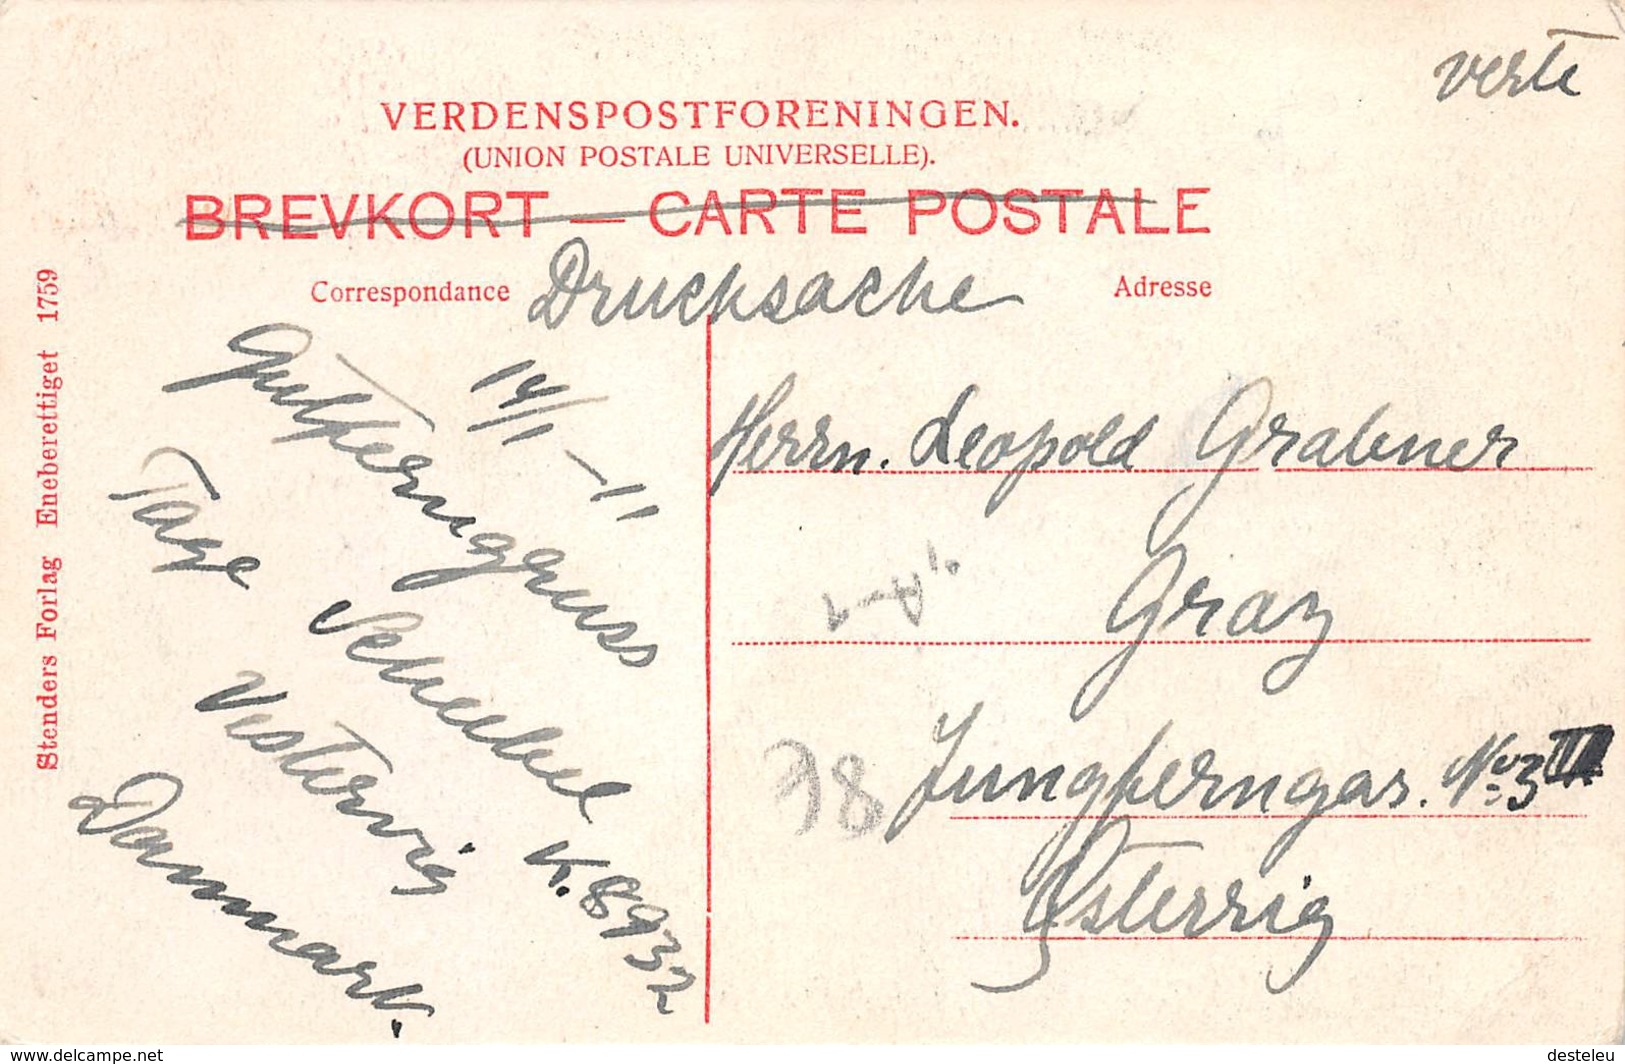 verte
VERDENSPOSTFORENINGEN.
(UNION POSTALE UNIVERSELLE).
BREVKORT — CARTE POSTALE
Correspondance
Drucksache
Adresse
14/1 - 11
Gutferngruss
Tage Schenbel
K. 8932
Vestervig
Danmark.
Herrn. Leopold Grabner
Graz
Jungferngas. No 3 III
Østerrig
78
Stenders Forlag Eneberettiget 1759
www.delcampe.net
desteleu